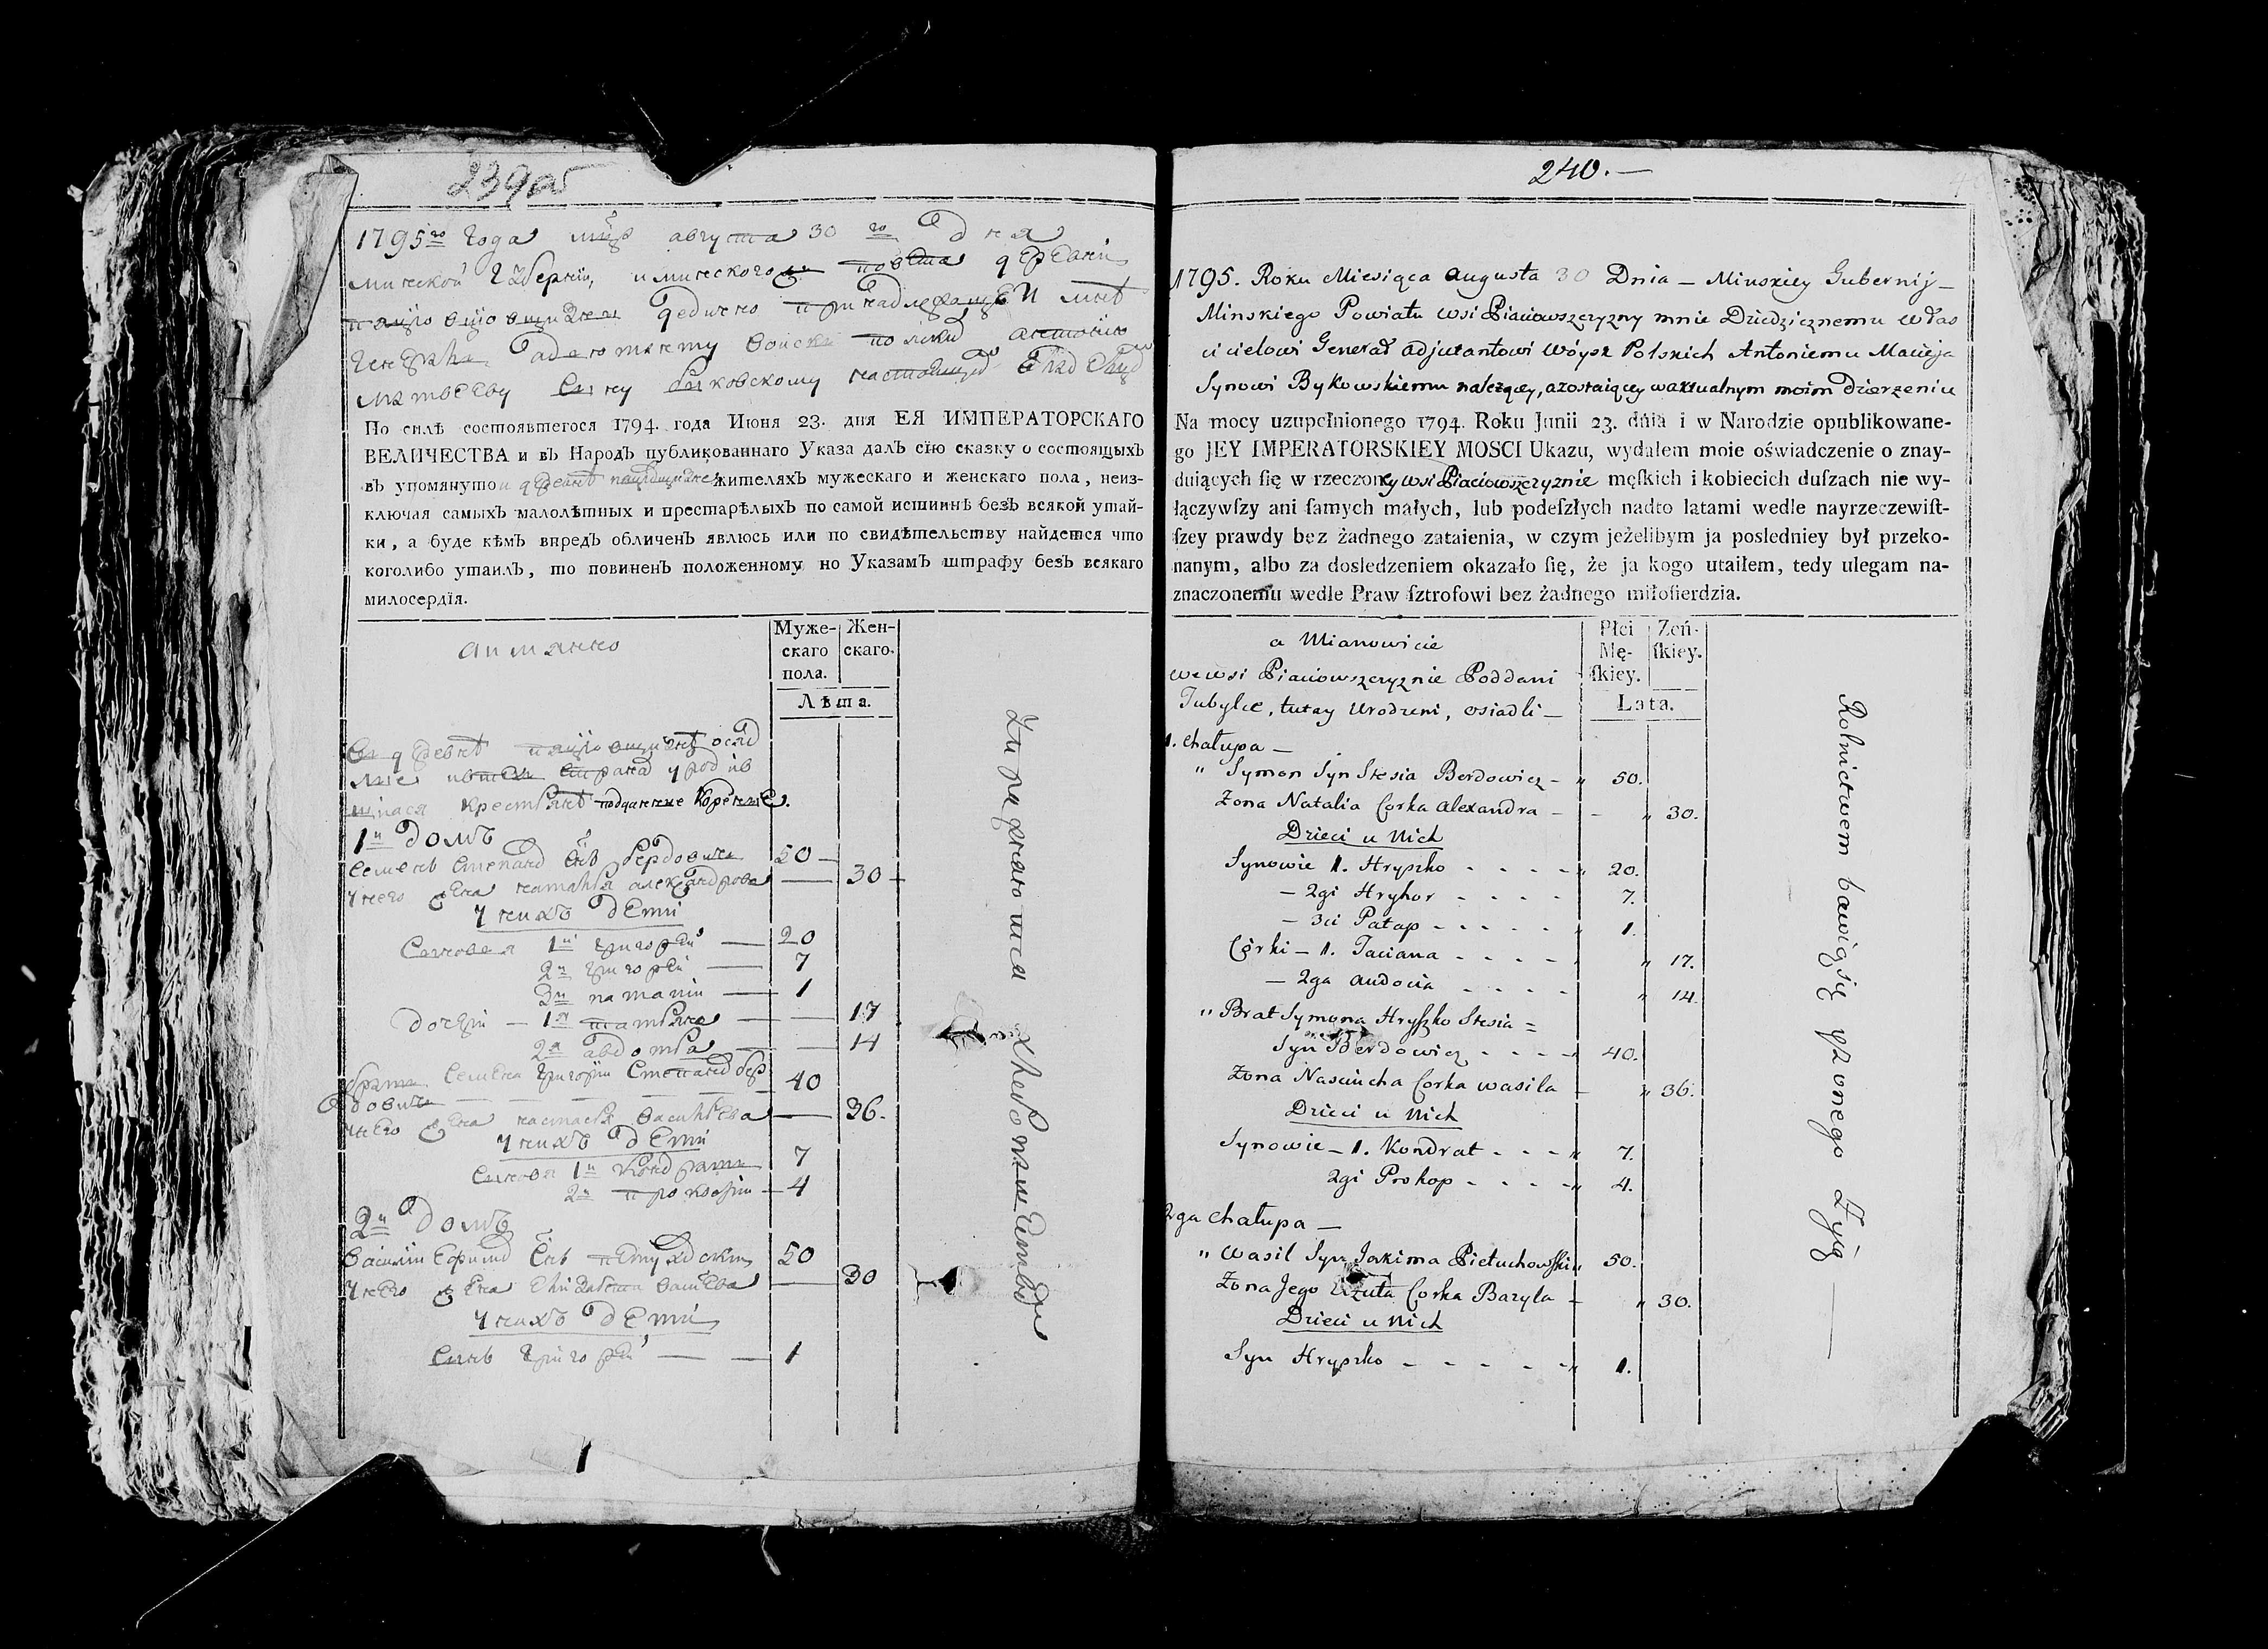 239об
1795го года мца августа 30го дня
минской губернїи, и минского повета деревни
генерал адютанту войск полскихъ антонию
матвееву сну быковскому
По силѣ состоявшегося 1794. года Июня 23. дня ЕЯ ИМПЕРАТОРСКАГО
ВЕЛИЧЕСТВА и въ Народъ публикованнаго Указа далъ сїю сказку о состоящихъ
въ упомянутои деревне жителяхъ мужескаго и женскаго пола, неиз-
ключая самыхъ малолѣтныхъ и престарѣлыхъ по самой истиннѣ безъ всякой утай-
ки, а буде кѣмъ впредъ обличенъ явлюсь или по свидѣтельству найдется что
коголибо утаилъ, то повиненъ положенному по Указамъ штрафу безъ всякаго
милосердїя.
а имянно
Муже-
скаго
пола.
Жен-
скаго.
Лѣта.
1й домъ
Семенъ Степановъ снъ бердовичъ 50
у него жена наталья александрова 30
у нихъ дети
Сыновья 1й григорей 20
2й григорей 7
3й патапий 1
дочери 1я татьяна 17
2я авдотья 14
братъ Семена григорий Степановъ бер
довичъ 40
у него жена настасья васильева 36.
у нихъ дети
Сыновья 1й кондратъ 7
2й прокофий 4
2й домъ
василий ефимовъ снъ петуховский 50
у него жена 30
у нихъ дети
Сынъ григорей 1
хлебопашествомъ
240.—
1795. Roku Miesiąca Augusta 30 Dnia — Minskiey Gubernij —
Minskiego Powiatu wsi Piaciowszczyzny mnie Dziedzicznemu Włas
cicielowi Generał Adjutantowi Wóysk Polskich Antoniemu Macieja
Synowi Bykowskiemu należącey, a zostaiącey w aktualnym moim Dzierzeniu
Na mocy uzupełnionego 1794. Roku Junii 23. dnia i w Narodzie opublikowane-
go JEY IMPERATORSKIEY MOSCI Ukazu, wydałem moie oświadczenie o znay-
duiących ſię w rzeczoney wsi Piaciowszczyznie męſkich i kobiecich duſzach nie wy-
łączywſzy ani ſamych małych, lub podeſzłych nadto latami wedle nayrzeczewiſt-
ſzey prawdy bez żadnego zataienia, w czym jeżelibym ja posledniey był przeko-
nanym, albo za dosledzeniem okazało ſię, że ja kogo utaiłem, tedy ulegam na-
znaczonemu wedle Praw ſztrofowi bez żadnego miłoſierdzia.
a Mianowicie
we wsi Piaciowszczyznie Poddani
Tubylce, tutay Urodzeni, osiadli —
Płci
Mę-
ſkiey.
Zeń-
ſkiey.
Lata.
1. Chałupa —
" Symon Syn Stesia Berdowicz — " 50.
Zona Natalia Corka Alexandra — — " 30.
Dzieci u Nich
Synowie 1. Hryszko - - - - " 20.
— 2gi Hryhor - - - - 7.
— 3ci Patap - - - - - " 1.
Córki — 1. Taciana - - - - " 17.
— 2ga Audocia - - - - " 14.
" Brat Symona Hryszko Stesia =
Syn Berdowicz - - - - 40.
Zona Nascincha Corka Wasila — " 36.
Dzieci u Nich
Synowie — 1. Kondrat - - - " 7.
2gi Prokop - - - - " 4.
2ga Chałupa —
" Wasil Syn Jakima Pietuchowſki " 50.
Zona Jego Corka Bazyla — " 30.
Dzieci u Nich
Syn Hryszko - - - - - " 1.
Rolnictwem bawią się y z onego Żyją —